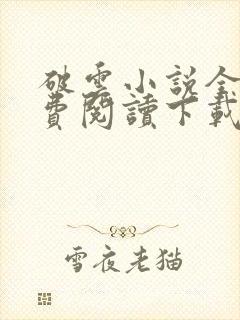 破雲小說全
費閱讀下載
雪夜老猫